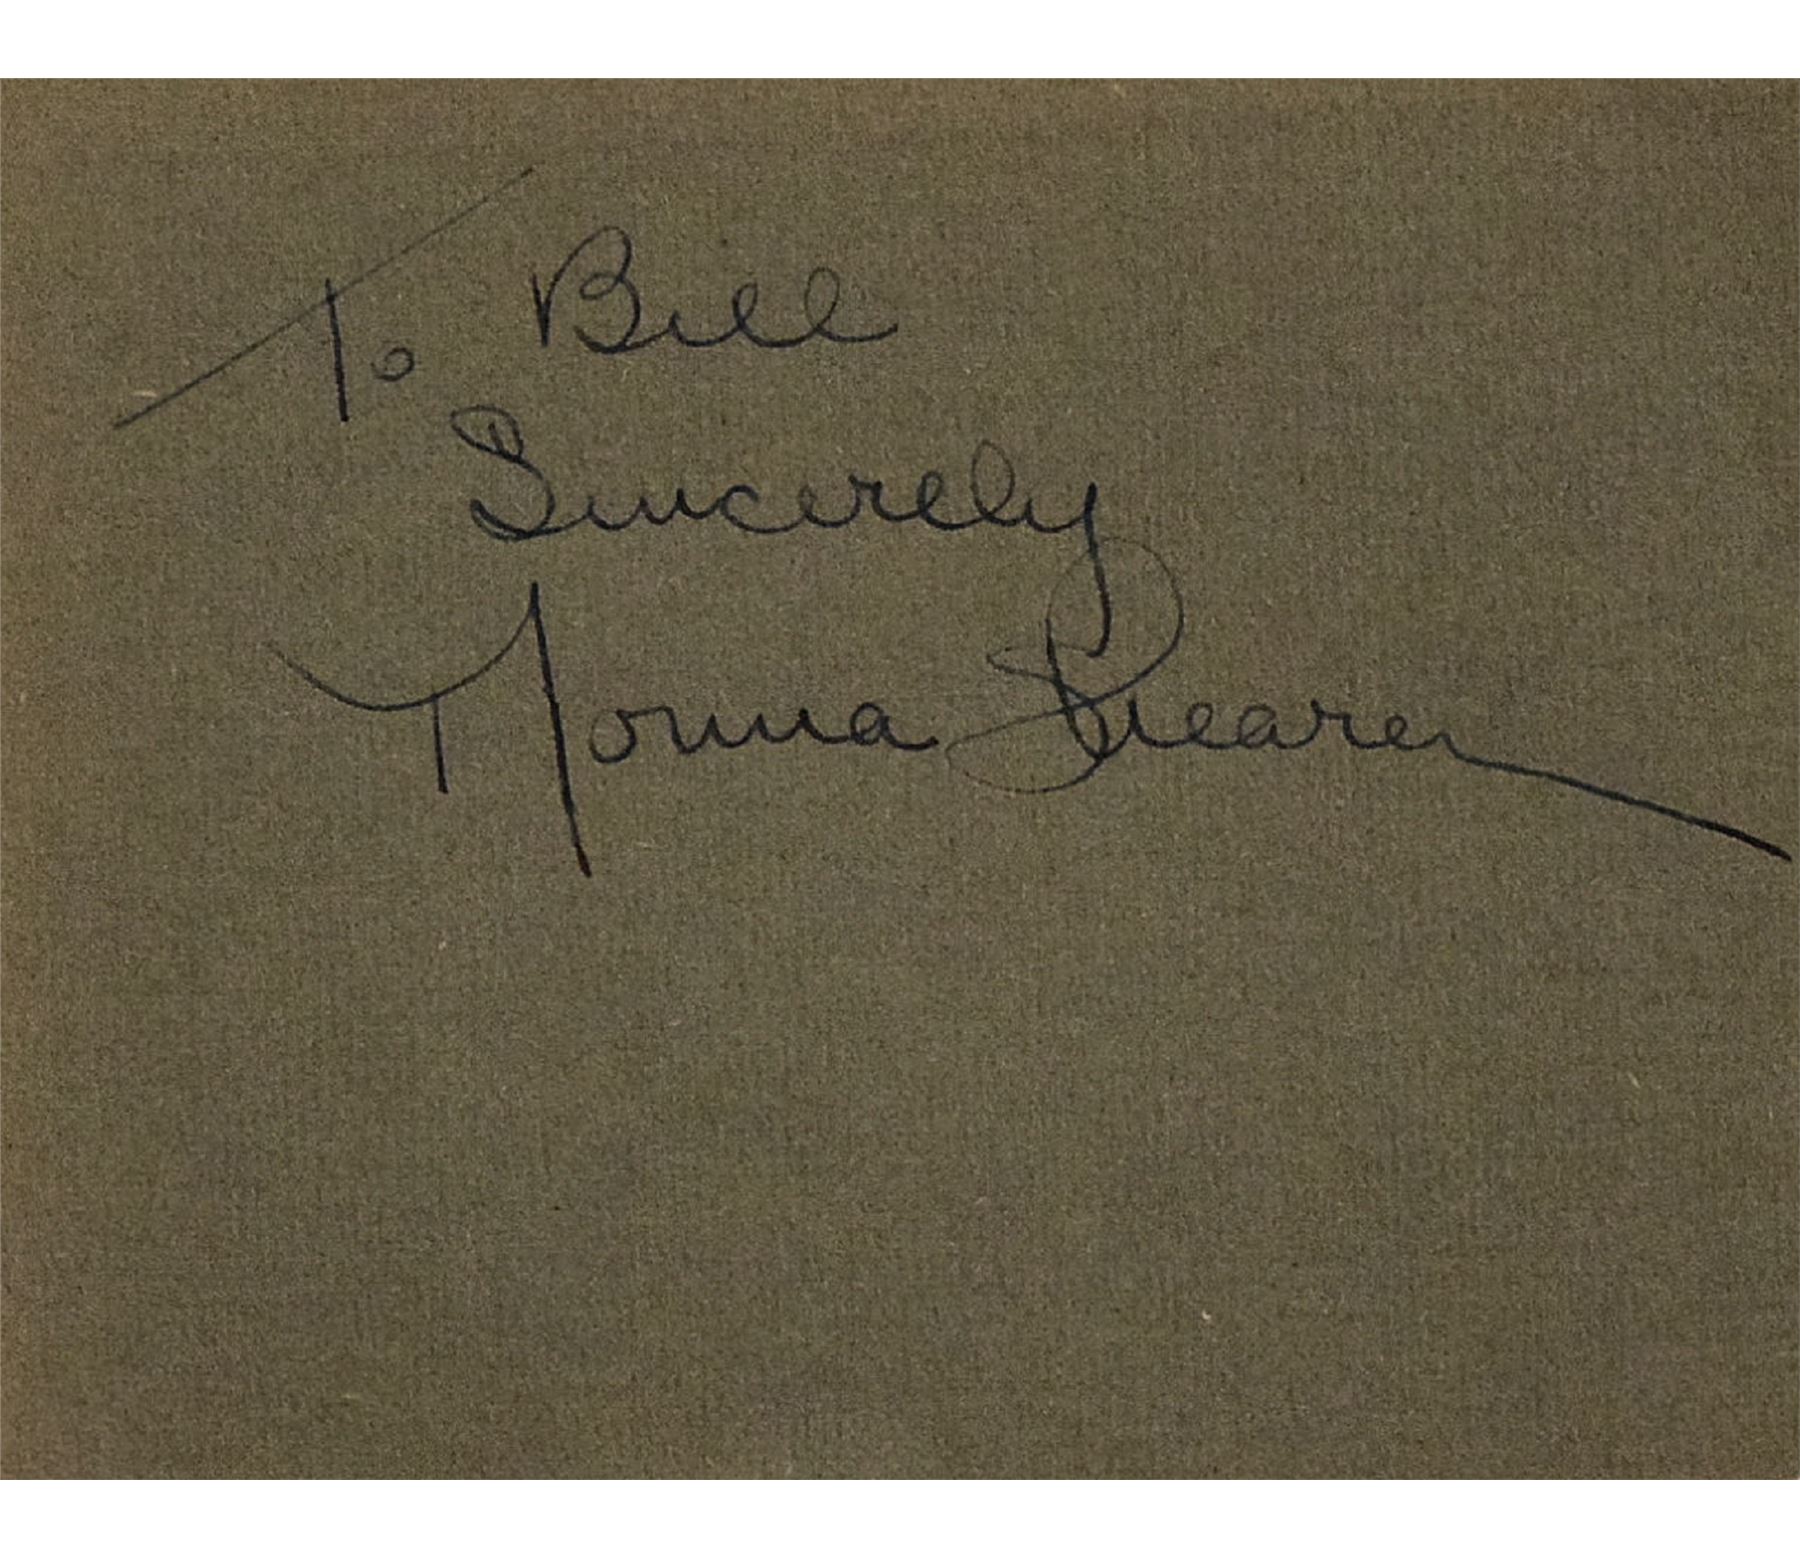 To Bill
Sincerely
Norma Shearer